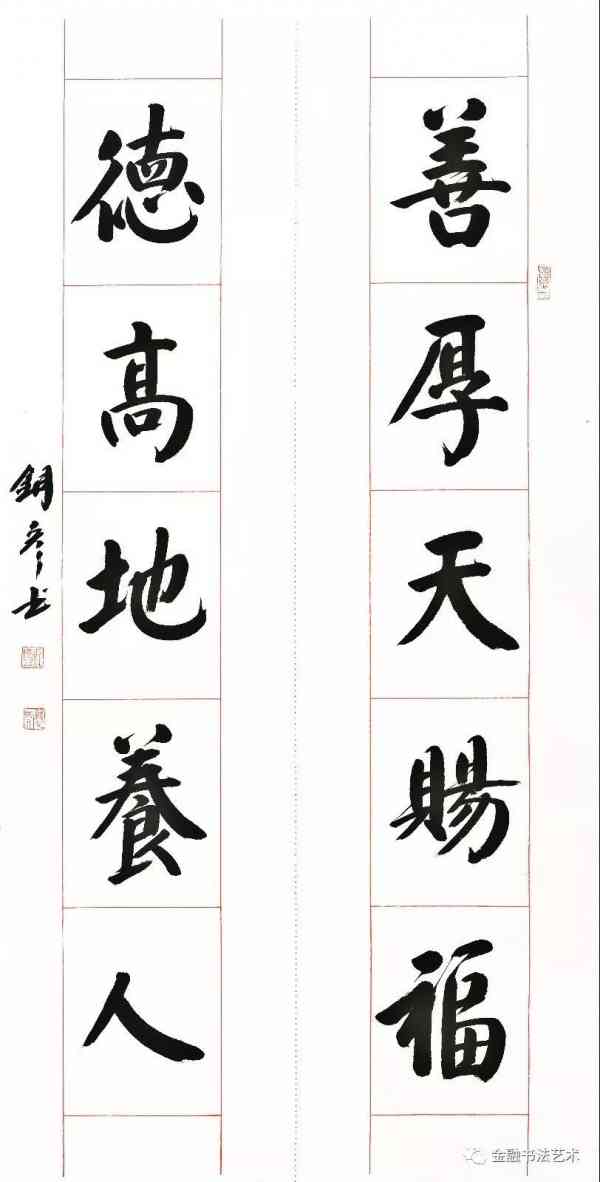 善厚天賜福
德高地養人
金融书法艺术